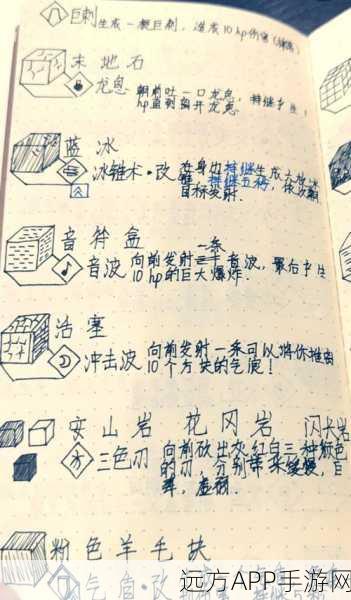 巨刺 生成一根巨刺，造成10hp伤害
末地石
龙息 朝前吐一口龙息，持继
hp直到离开龙息
蓝冰
冰锥术·改 在身边持继生成
持继五秒，依次朝
目标发射.
音符盒
一条
音波 向前发射音波，最后产生
10hp的巨大爆炸.
活塞
冲击波 向前发射一条可以将你推出
10个方块的气流！
安山岩 花冈岩 闪长岩
三色刃 向前砍出灰红白三种颜色
的刃，分别带来缓慢，
虚弱.
粉色羊毛块
气盾·改
远方APP手游网